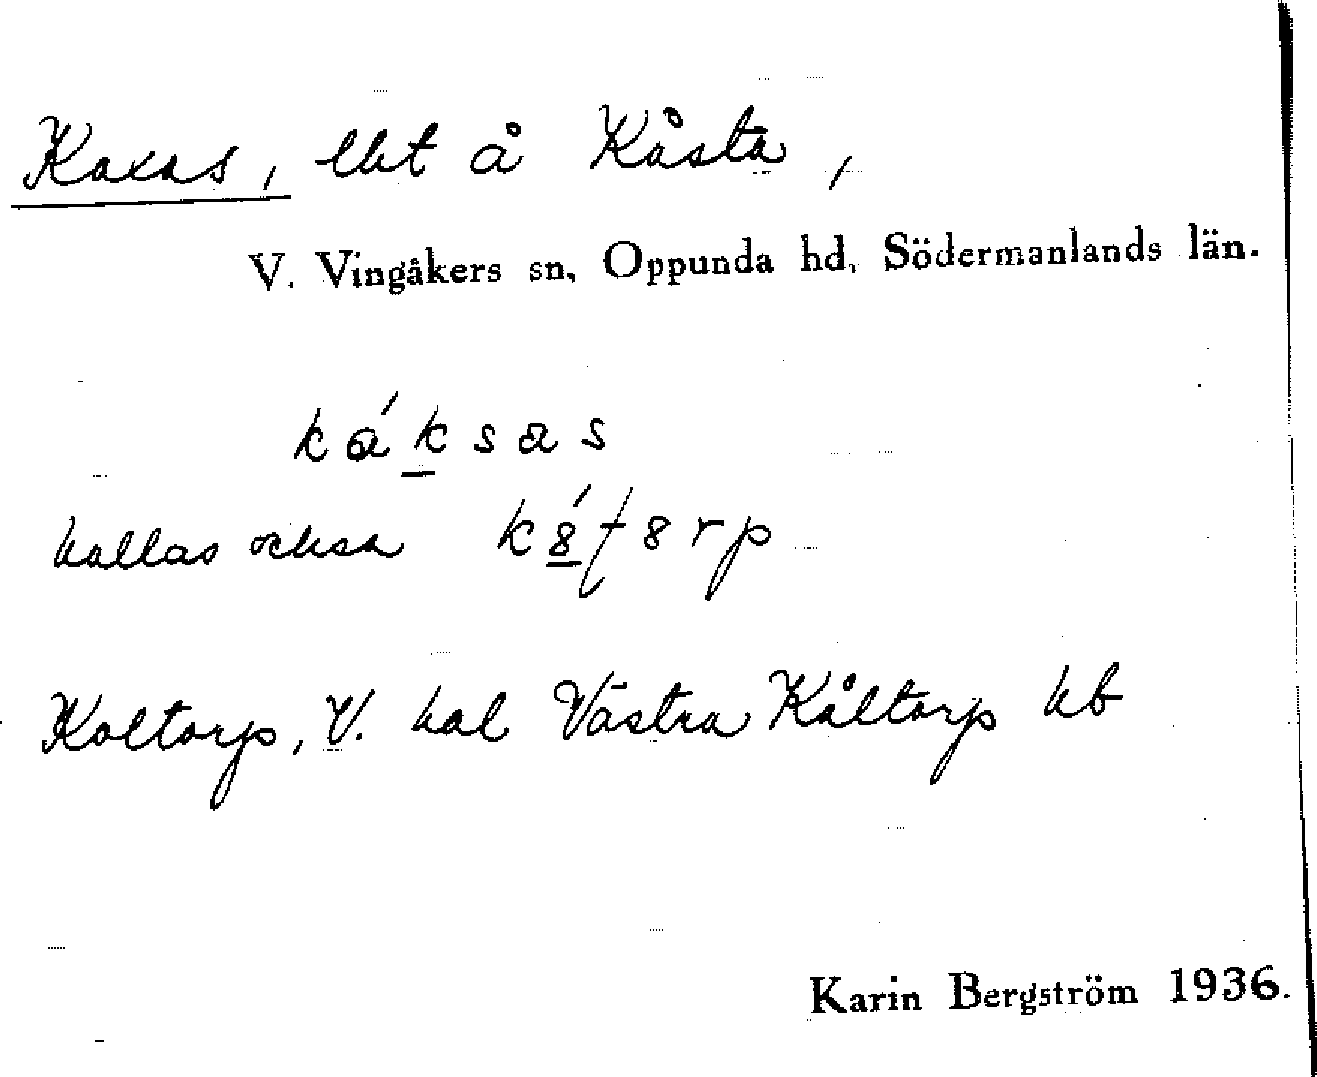 Kaxas, lht å Kåsta,
V. Vingåkers sn, Oppunda hd, Södermanlands län.
káksas
kallas också kȣ́ƚȣrp
Koltorp, V. kal Västra Kåltorp kb
Karin Bergström 1936.